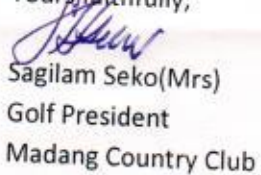 Yours faithfully,
Sagilam Seko(Mrs)
Golf President
Madang Country Club